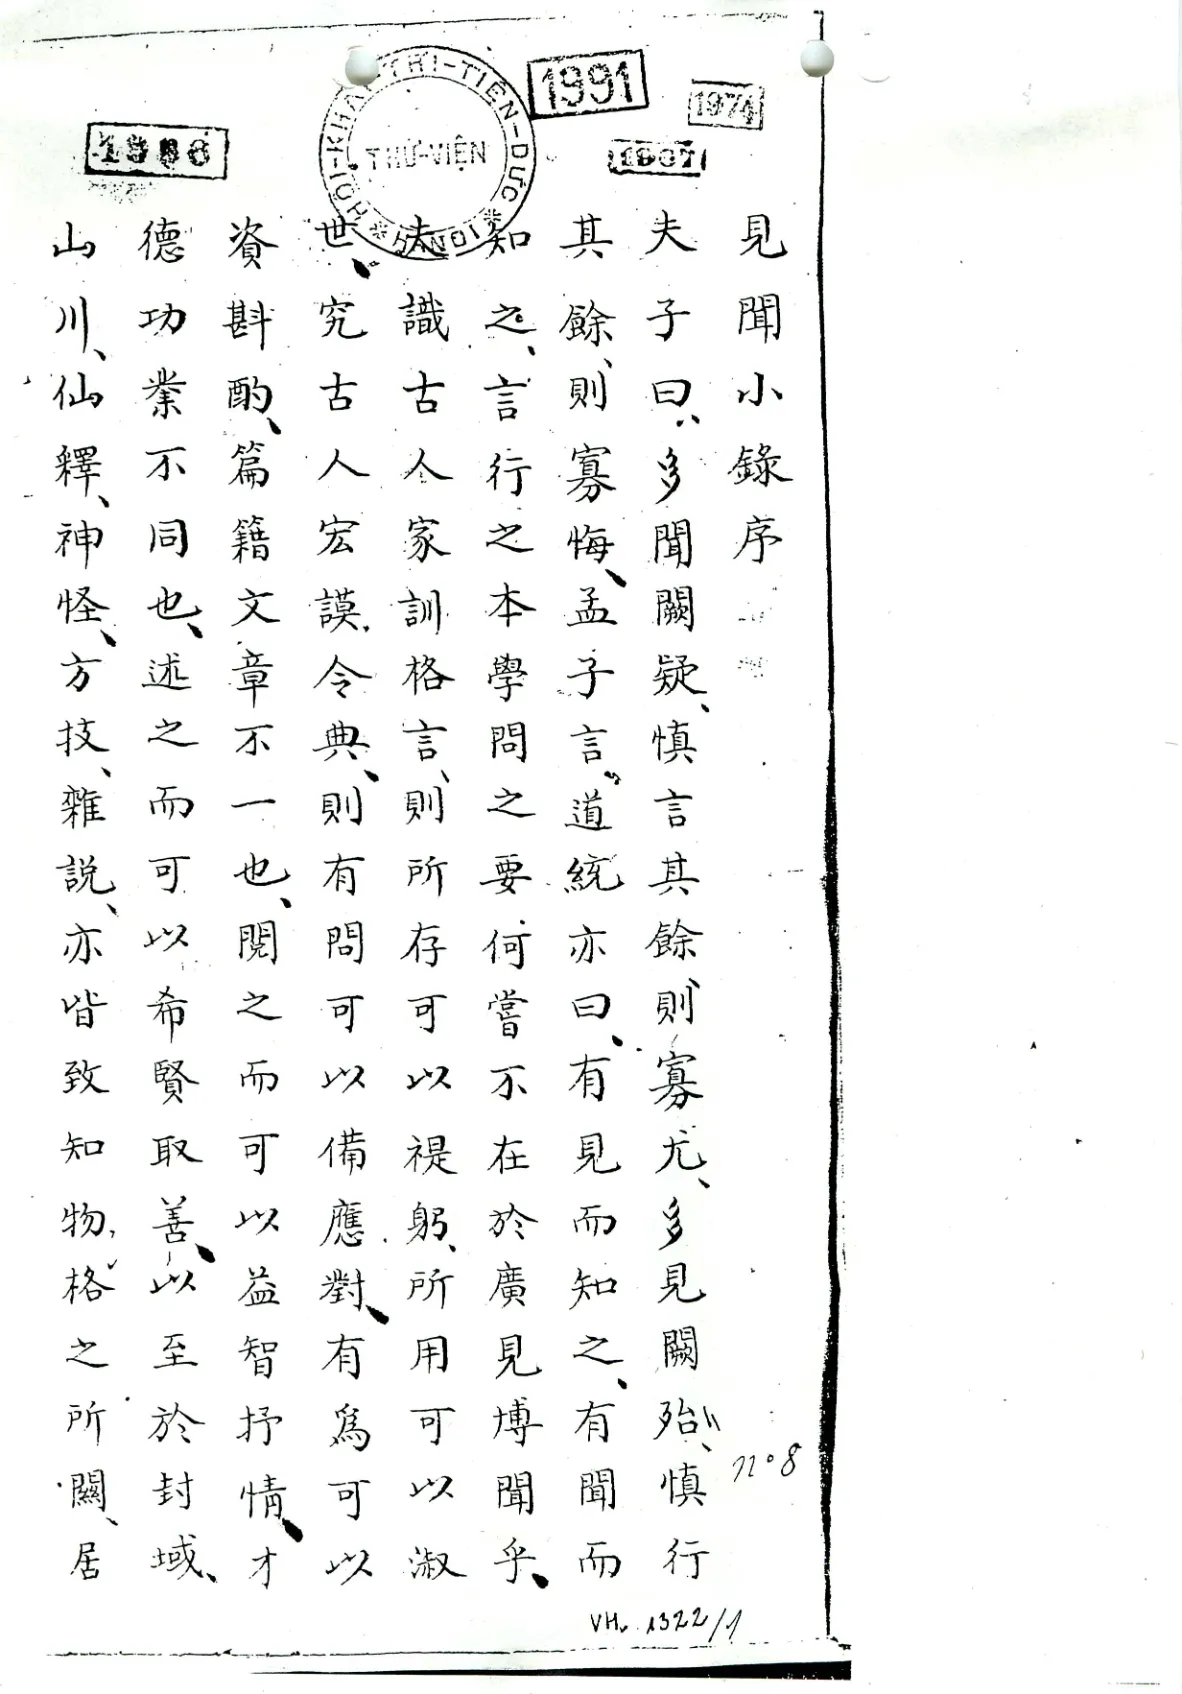 見聞小錄序
夫子曰、多聞闕疑、慎言其餘則寡尤、多見闕殆、慎行
其餘、則寡悔、孟子言、道統亦曰、有見而知之、有聞而
知之、言行之本學問之要何嘗不在於廣見博聞乎、
夫識古人家訓格言、則所存可以禔躬、所用可以淑
世、究古人宏謨令典、則有問可以備應對、有爲可以
資斟酌、篇籍文章不一也、閱之而可以益智抒情、才
德功業不同也、述之而可以希賢取善、以至於封域、
山川、仙釋、神怪、方技、雜説、亦皆致知物格之所關、居
HỘI-KHAI-TRÍ-TIẾN-ĐỨC
THƯ-VIỆN
HANOI
1991
1974
1907
1986
nº8
VHv 1322/1